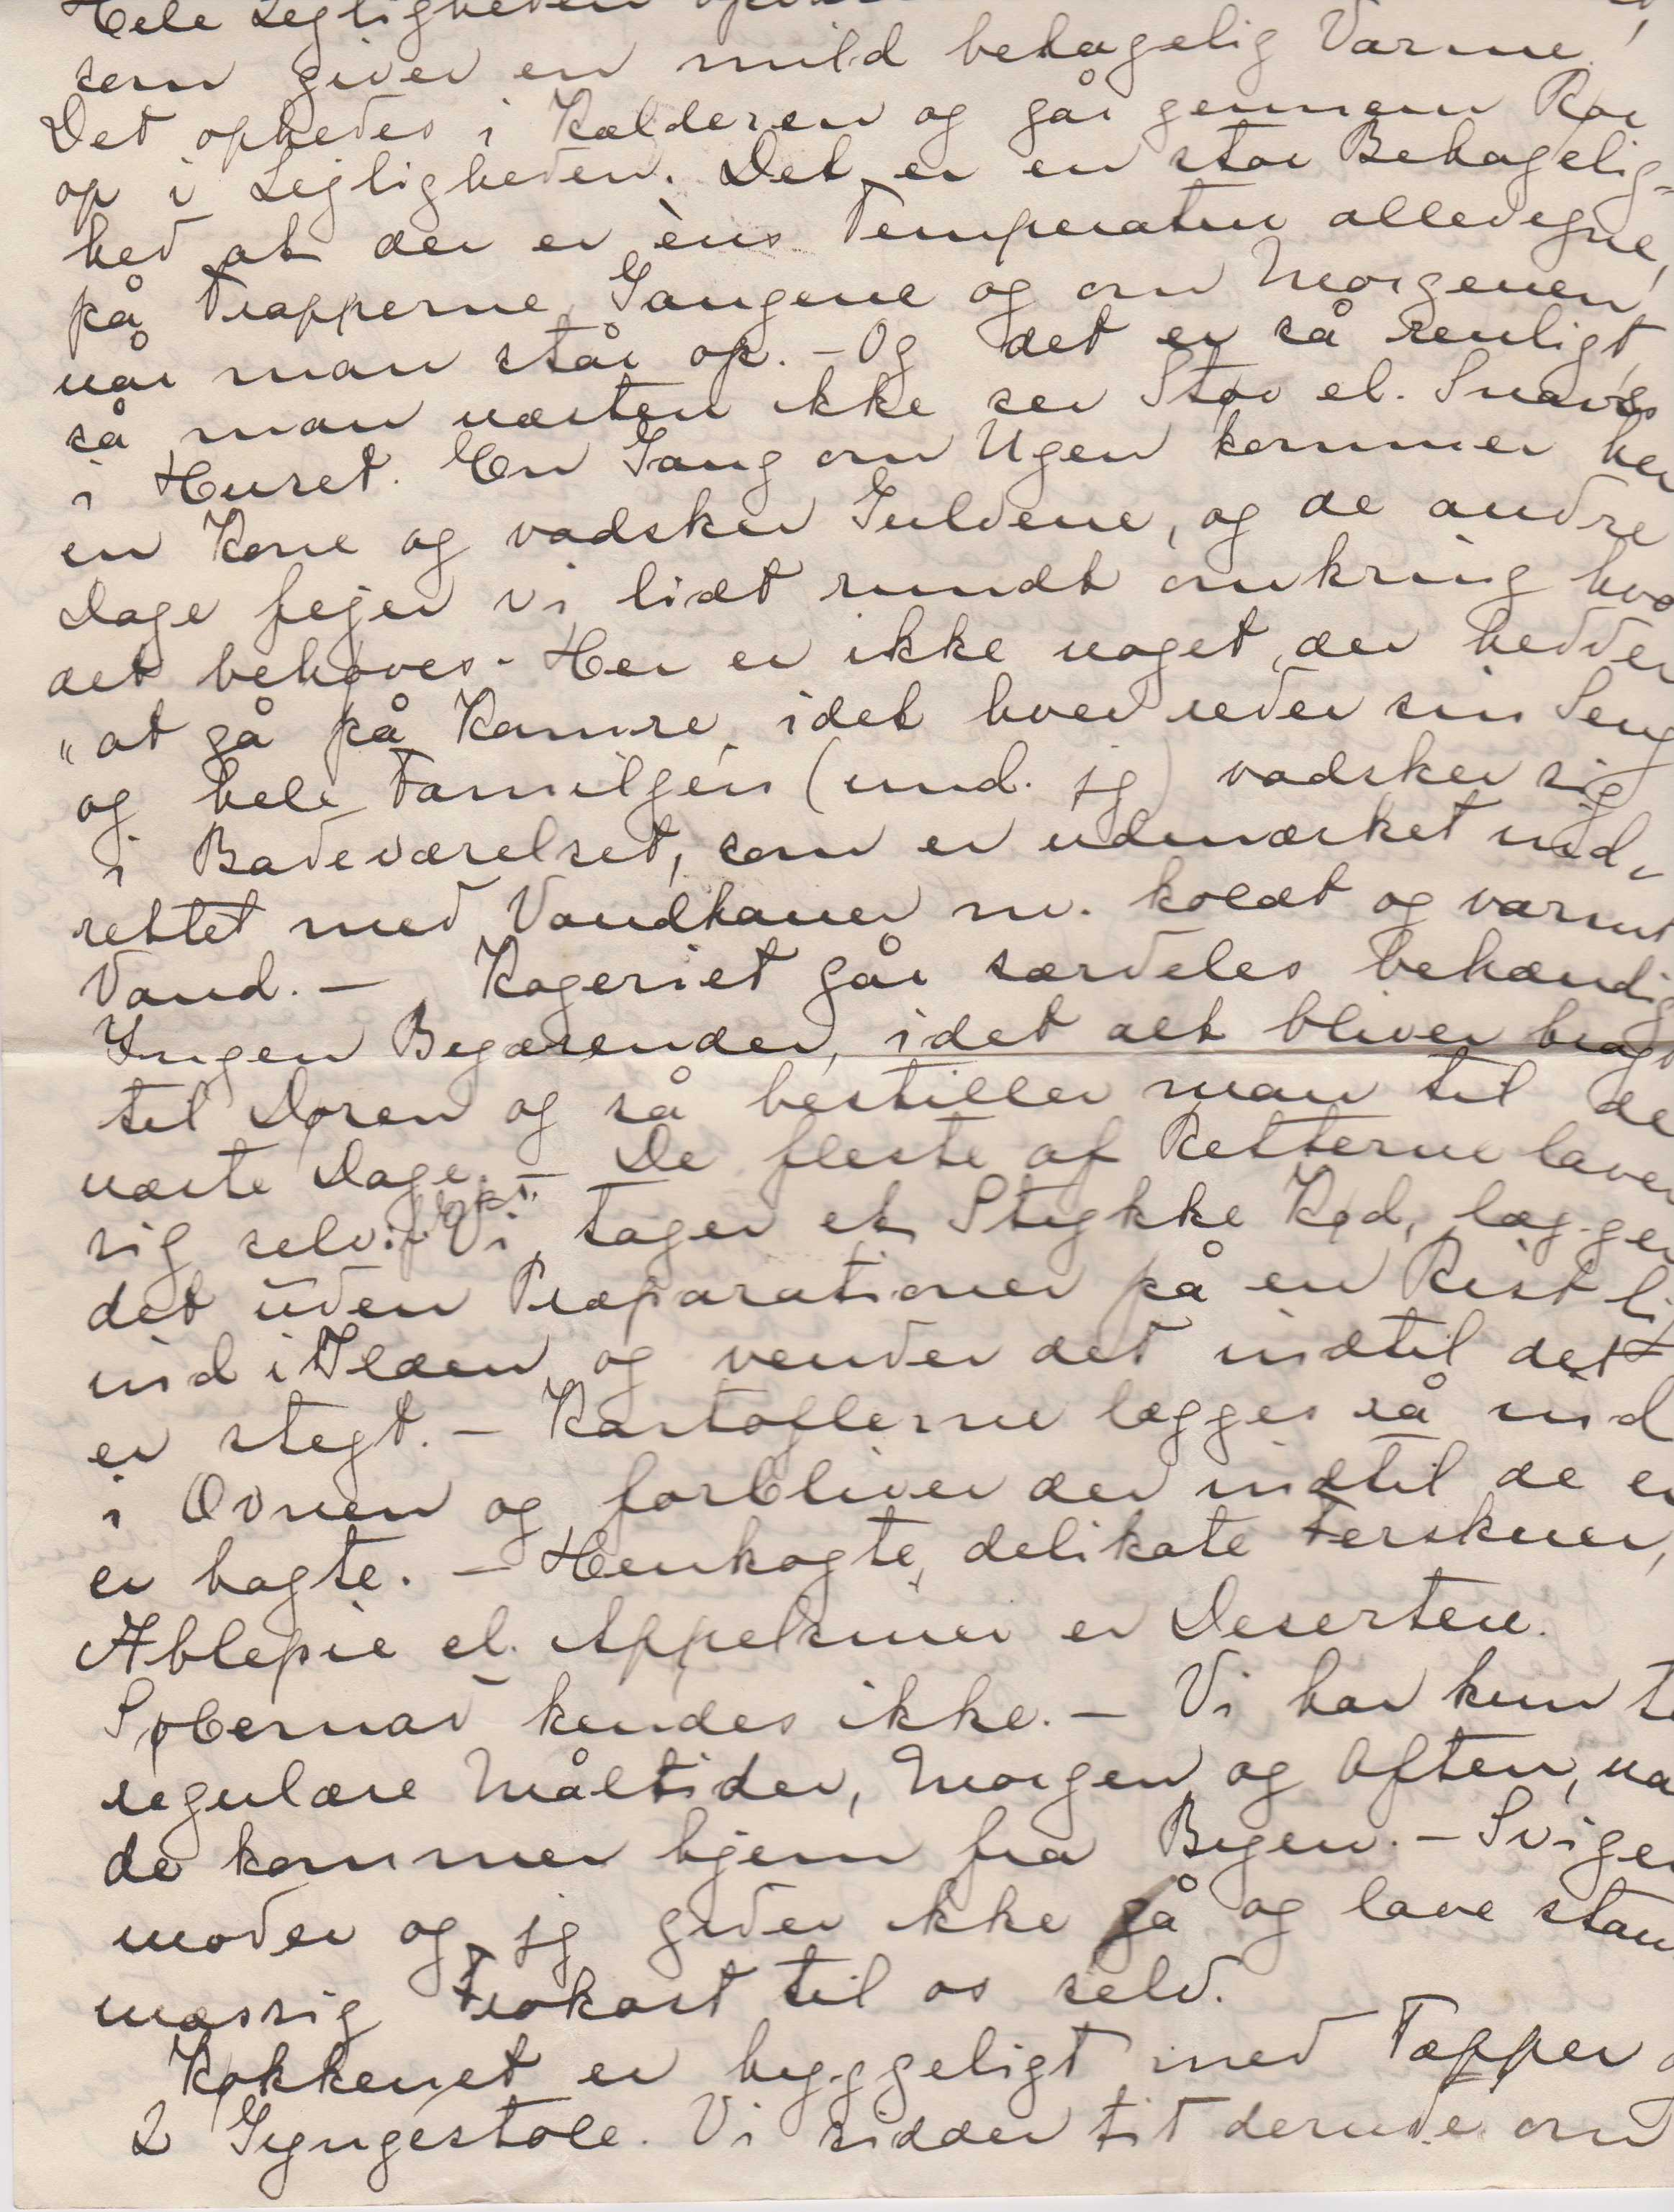 Hele Lejligheden
som giver en mild behagelig Varme!
Det ophedes i Kælderen og går gennem Rør
op i Lejligheden. Det er en stor Behagelig-
hed at der er èns Temperatur allevegne,
på Trapperne, Gangene og om Morgenen,
når man står op. - Og det er så renligt,
så man næsten ikke ser Støv el. Snavs
i Huset. En Gang om Ugen kommer her
en Kone og vadsker Gulvene, og de andre
Dage fejer vi lidt rundt omkring hvo
det behøves. Her er ikke noget, der hedder
"at gå på Kamre, idet hver reder sin Seng
og hele Familjen (und. jg) vadsker sig
i Badeværelset, som er udmærket ind-
rettet med Vandhaner m. koldt og varmt
Vand. - Kogeriet går særdeles behændig
Ingen Byærender, idet alt bliver bragt
til Døren og så bestiller man til de
næste Dage. - De fleste af Retterne laver
sig selv: Vi f. Eks. tager et Stykke Kød, lægger
det uden Præparationer på en Rist li
ind i Ilden og vender det indtil det
er stegt. - Kartoflerne lægges rå ind
i Ovnen og forbliver der indtil de er
er bagte. - Henkogte, delikate Ferskner,
Æblepie el. Appelsiner er Deserten.
Søbemad kendes ikke. - Vi har kun to
regulære Måltider, Morgen og Aften, na
de kommer hjem fra Byen. - Sviger
moder og jg gider ikke gå og lave stan
mæssig Frokost til os selv.
Køkkenet er hyggeligt med Tæpper o
2 Gyngestole. Vi sidder tit derude om